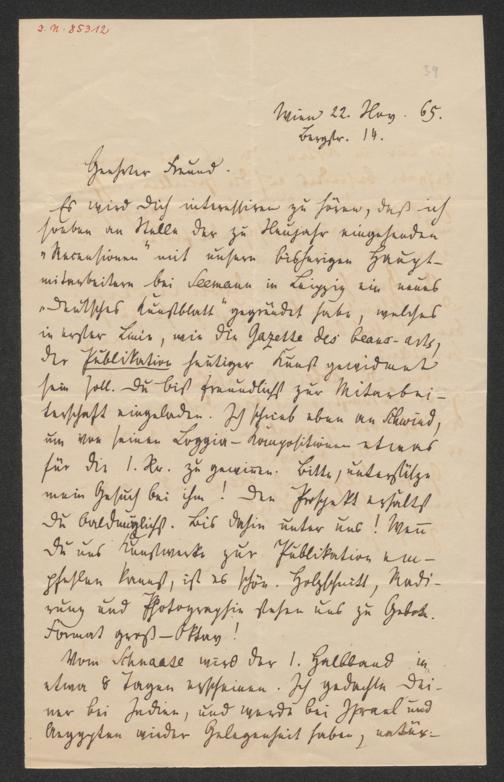 I.N. 85312
39
Wien 22. Nov. 65.
Bergstr. 14.
Geehrter Freund.
Es wird Dich interessiren zu hören, daß ich
soeben an Stelle der zu Neujahr eingehenden
„Recensionen" mit unsern bisherigen Haupt-
mitarbeitern bei Seemann in Leipzig ein neues
„Deutsches Kunstblatt" gegründet habe, welches
in erster Linie, wie die Gazette des beaux-arts,
der Publikation heutiger Kunst gewidmet
sein soll. Du bist freundlichst zur Mitarbei-
terschaft eingeladen. Ich schrieb eben an Schwind,
um von seinen Loggia-Kompositionen etwas
für die 1. Nr. zu gewinnen. Bitte, unterstütze
mein Gesuch bei ihm! Den Prospekt erhältst
Du baldmöglichst. Bis dahin unter uns! Wenn
Du uns Kunstwerke zur Publikation em-
pfehlen kannst, ist es schön. Holzschnitt, Radi-
rung und Photographie stehen uns zu Gebote.
Format groß-Oktav!
Vom Schnaase wird der 1. Halbband in
etwa 8 Tagen erscheinen. Ich gedachte Dei-
ner bei Indien, und werde bei Israel und
Aegypten wieder Gelegenheit haben, natür-